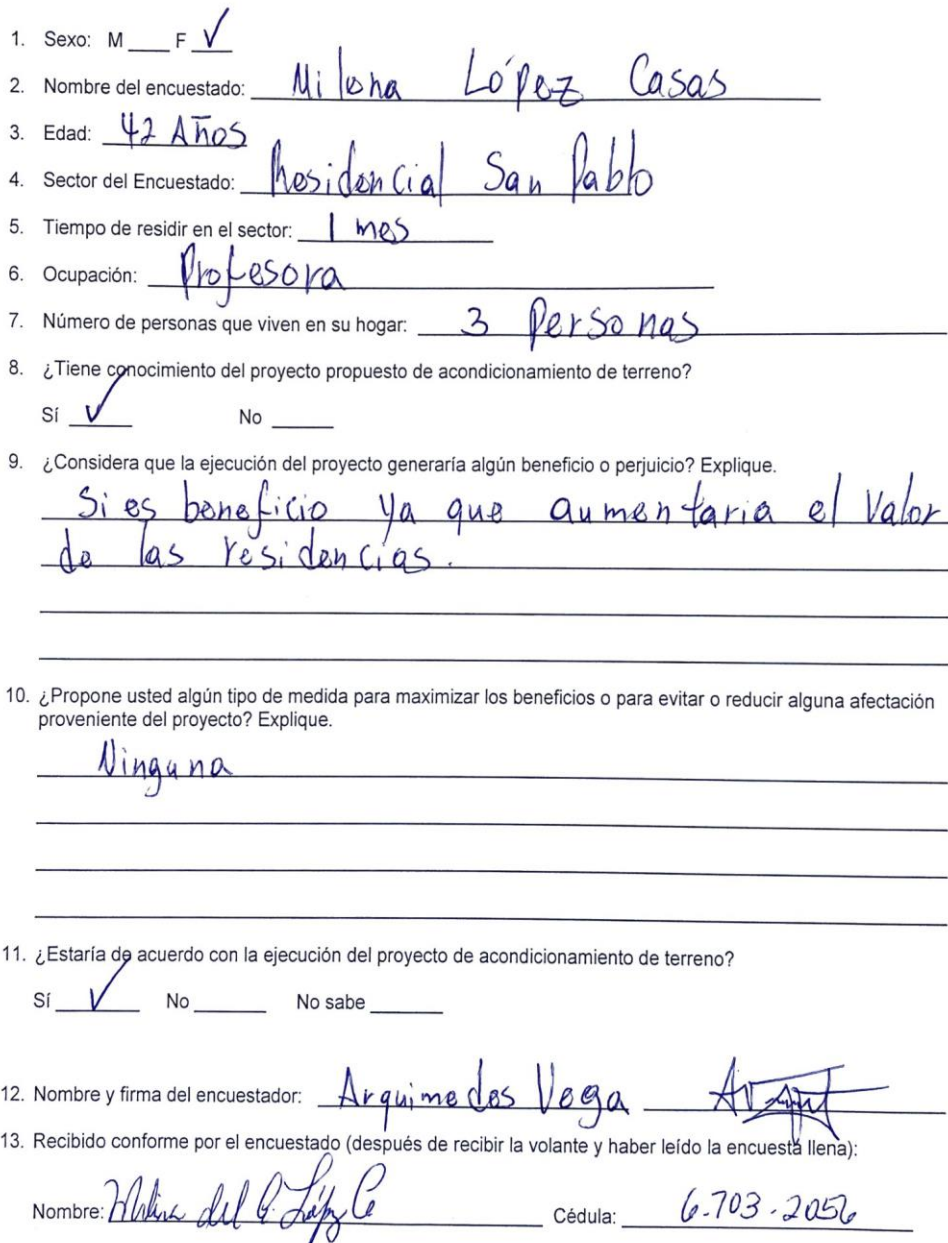 1. Sexo: M ____ F √
2. Nombre del encuestado: Milena López Casas
3. Edad: 42 Años
4. Sector del Encuestado: Residencial San Pablo
5. Tiempo de residir en el sector: 1 mes
6. Ocupación: Profesora
7. Número de personas que viven en su hogar: 3 Personas
8. ¿Tiene conocimiento del proyecto propuesto de acondicionamiento de terreno?
Sí √ No ____
9. ¿Considera que la ejecución del proyecto generaría algún beneficio o perjuicio? Explique.
Si es beneficio ya que aumentaria el Valor
de las residencias.
10. ¿Propone usted algún tipo de medida para maximizar los beneficios o para evitar o reducir alguna afectación
proveniente del proyecto? Explique.
Ninguna
11. ¿Estaría de acuerdo con la ejecución del proyecto de acondicionamiento de terreno?
Sí √ No ____ No sabe ____
12. Nombre y firma del encuestador: Arquimedes Vega
13. Recibido conforme por el encuestado (después de recibir la volante y haber leído la encuesta llena):
Nombre: del López Cédula: 6-703-2056